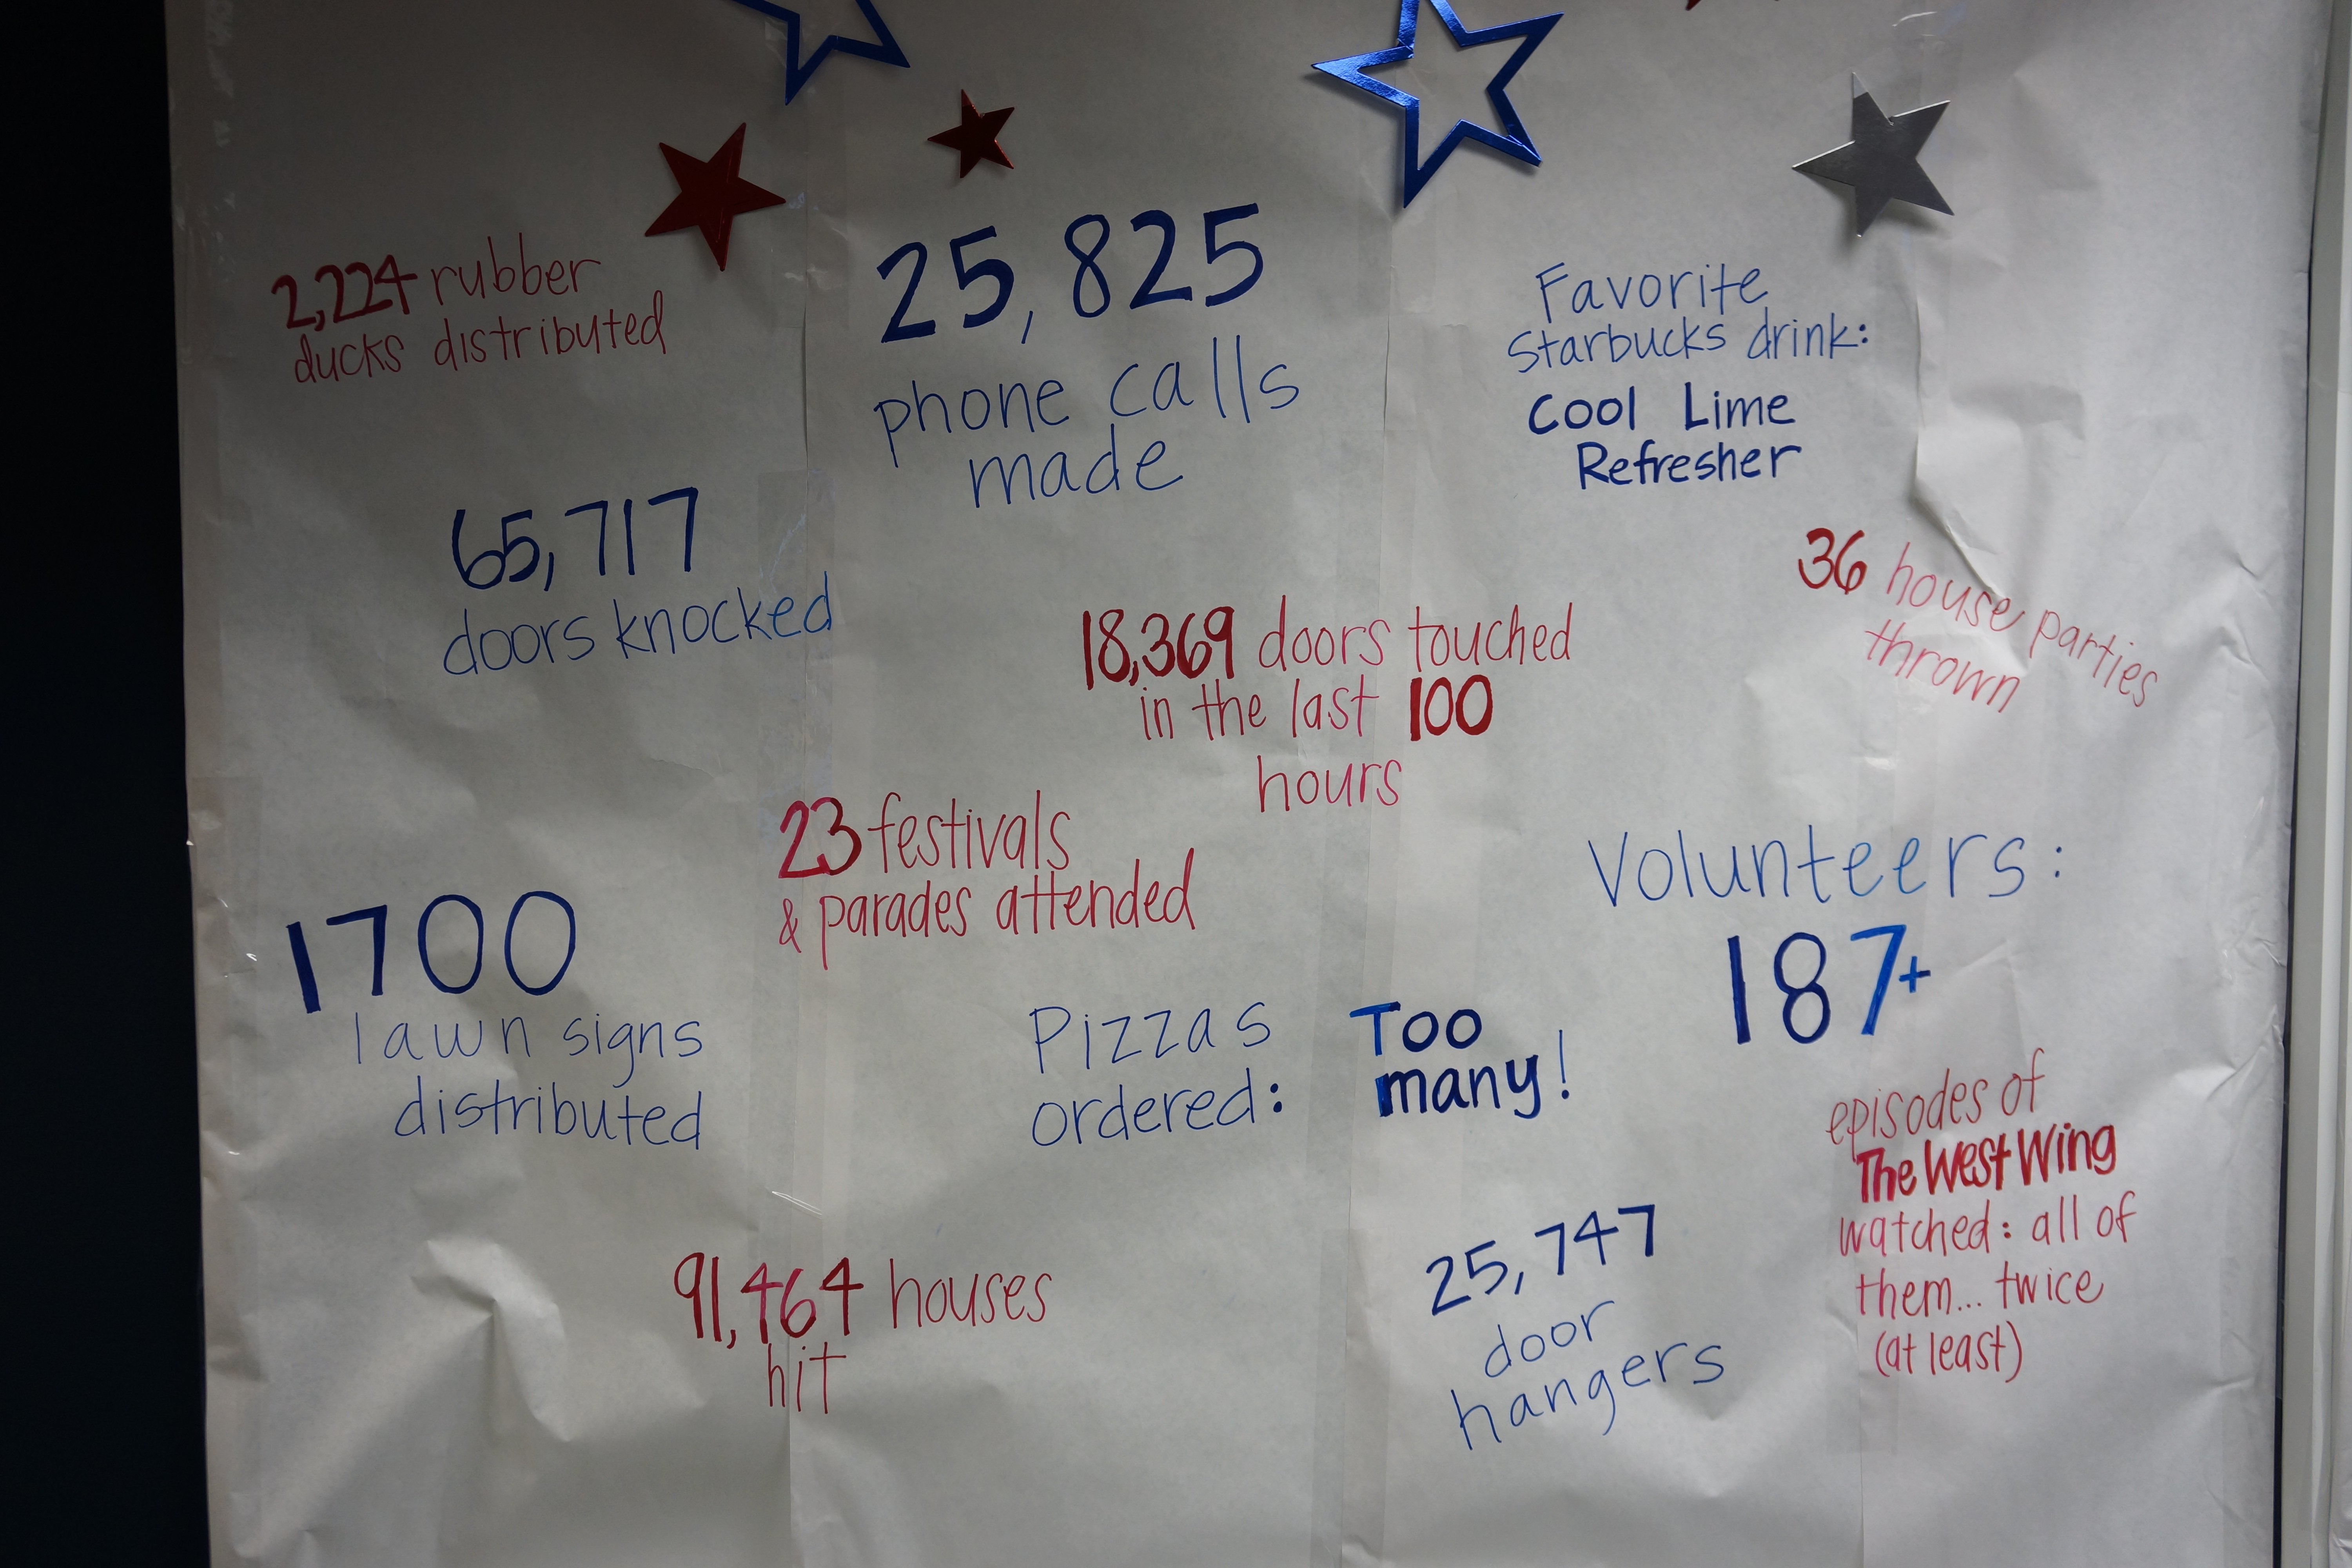 2,224 rubber
ducks distributed
25,825
phone calls
made
Favorite
Starbucks drink:
Cool Lime
Refresher
65,717
doors knocked
36 house parties
thrown
18,369 doors touched
in the last 100
hours
23 festivals
& parades attended
Volunteers:
187+
1700
lawn signs
distributed
Pizzas
ordered:
Too
many!
episodes of
The West Wing
watched: all of
them... twice
(at least)
91,464 houses
hit
25,747
door
hangers